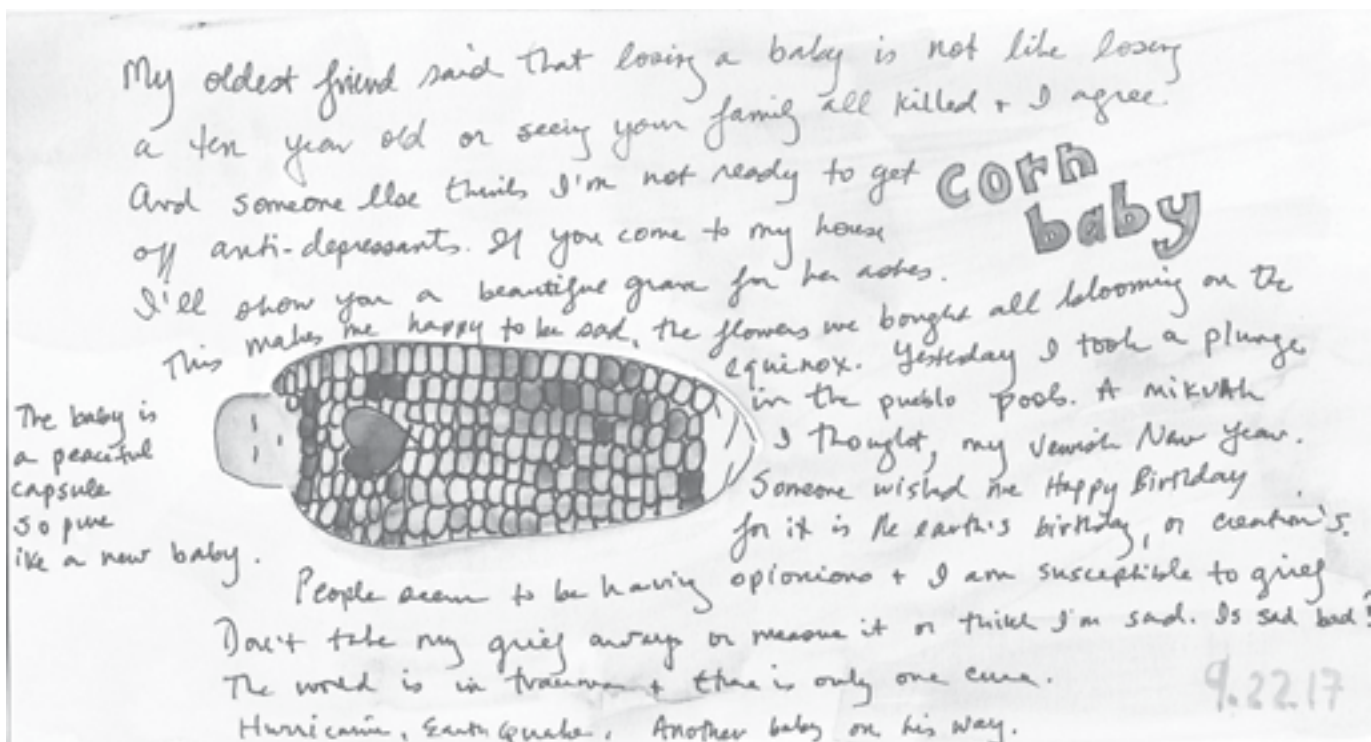 My oldest friend said that losing a baby is not like losing
a ten year old or seeing your family all killed + I agree.
And someone else thinks I'm not ready to get
off anti-depressants. If you come to my house
I'll show you a beautiful grave for her ashes.
This makes me happy to be sad, the flowers we bought all blooming on the
equinox. Yesterday I took a plunge
in the pueblo pools. A MIKVAH
I thought, my Jewish New Year.
Someone wished me Happy Birthday
for it is the earth's birthday, or creation's.
corn
baby
The baby is
a peaceful
capsule
so pure
ike a new baby.
People seem to be having opionions + I am susceptible to grief
Don't take my grief away or measure it or think I'm sad. Is sad bad?
The world is in trauma + there is only one cure.
Hurricane, Earthquake. Another baby on his way.
9.22.17